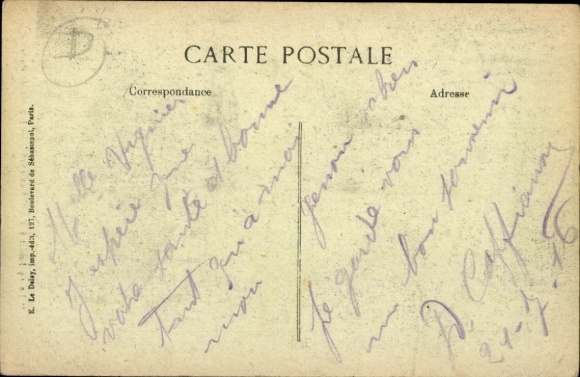 D
CARTE POSTALE
Correspondance
Adresse
E. Le Deley, imp.-édit., 127, Boulevard de Sébastopol, Paris.
Melle
J'espère que
votre santé et bonne
Tant qu'a moi
mon
Je garde vous
un bon souvenir
D.
21-7-16